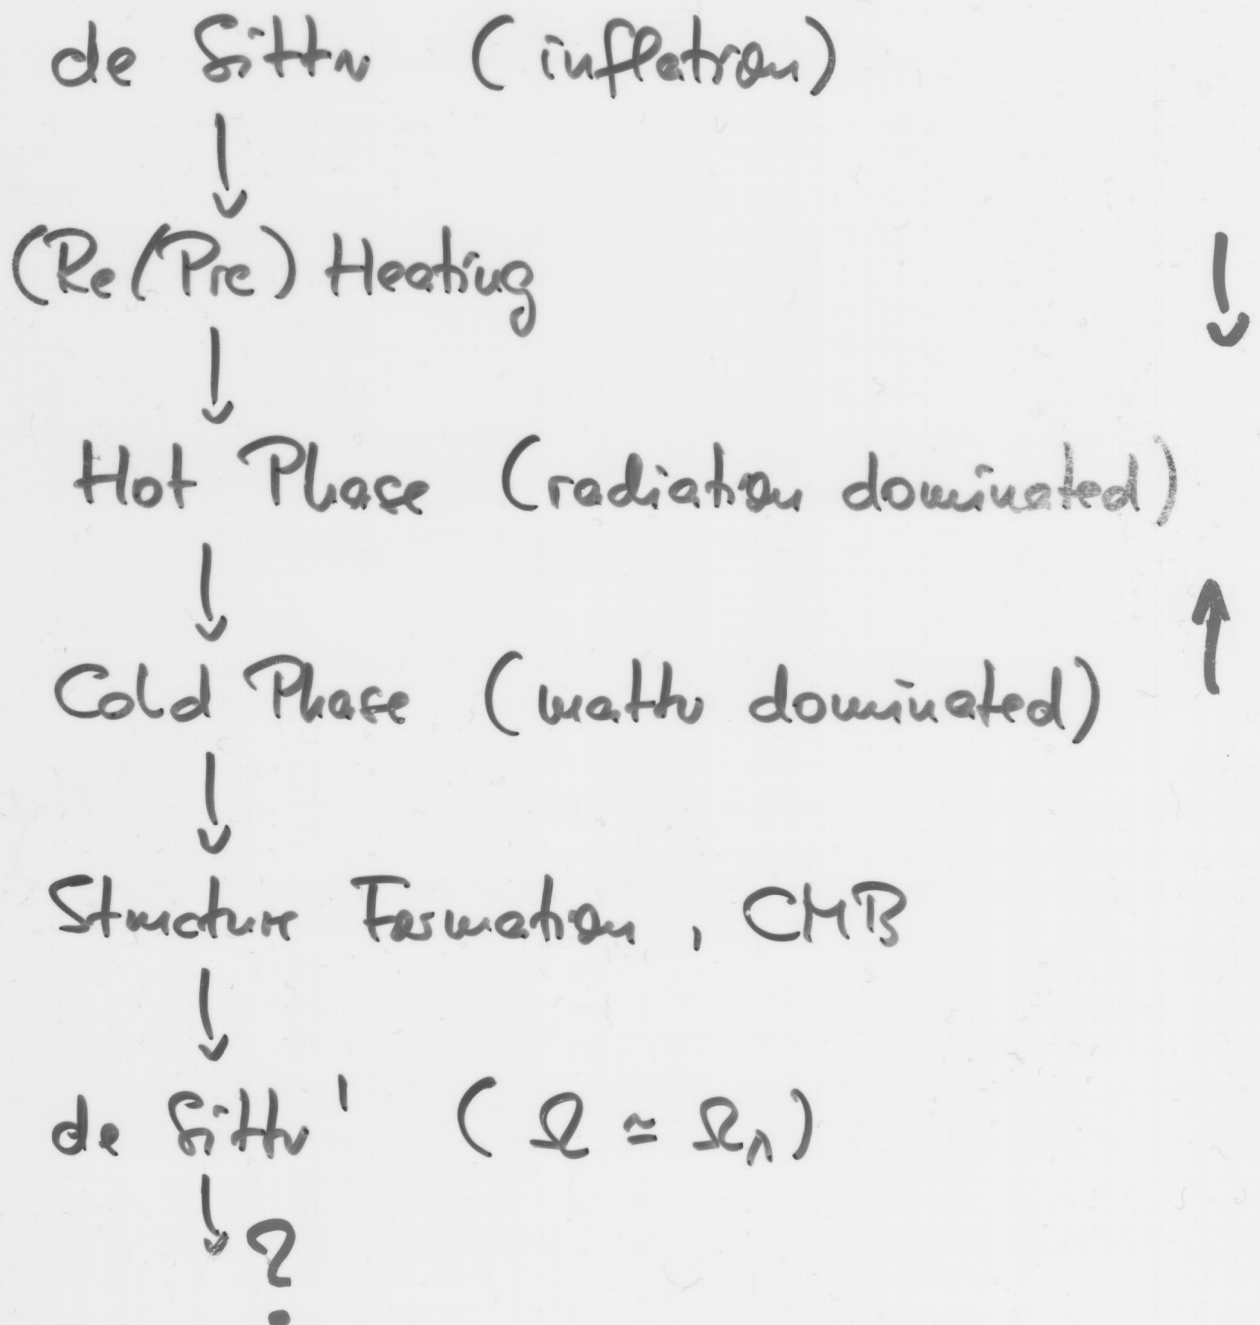 de Sitter (inflation)
↓
(Re(Pre) Heating
↓
Hot Phase (radiation dominated)
↓
Cold Phase (matter dominated)
↓
Structure Formation, CMB
↓
de Sitter' (Ω ≃ Ω_Λ)
↓ ?